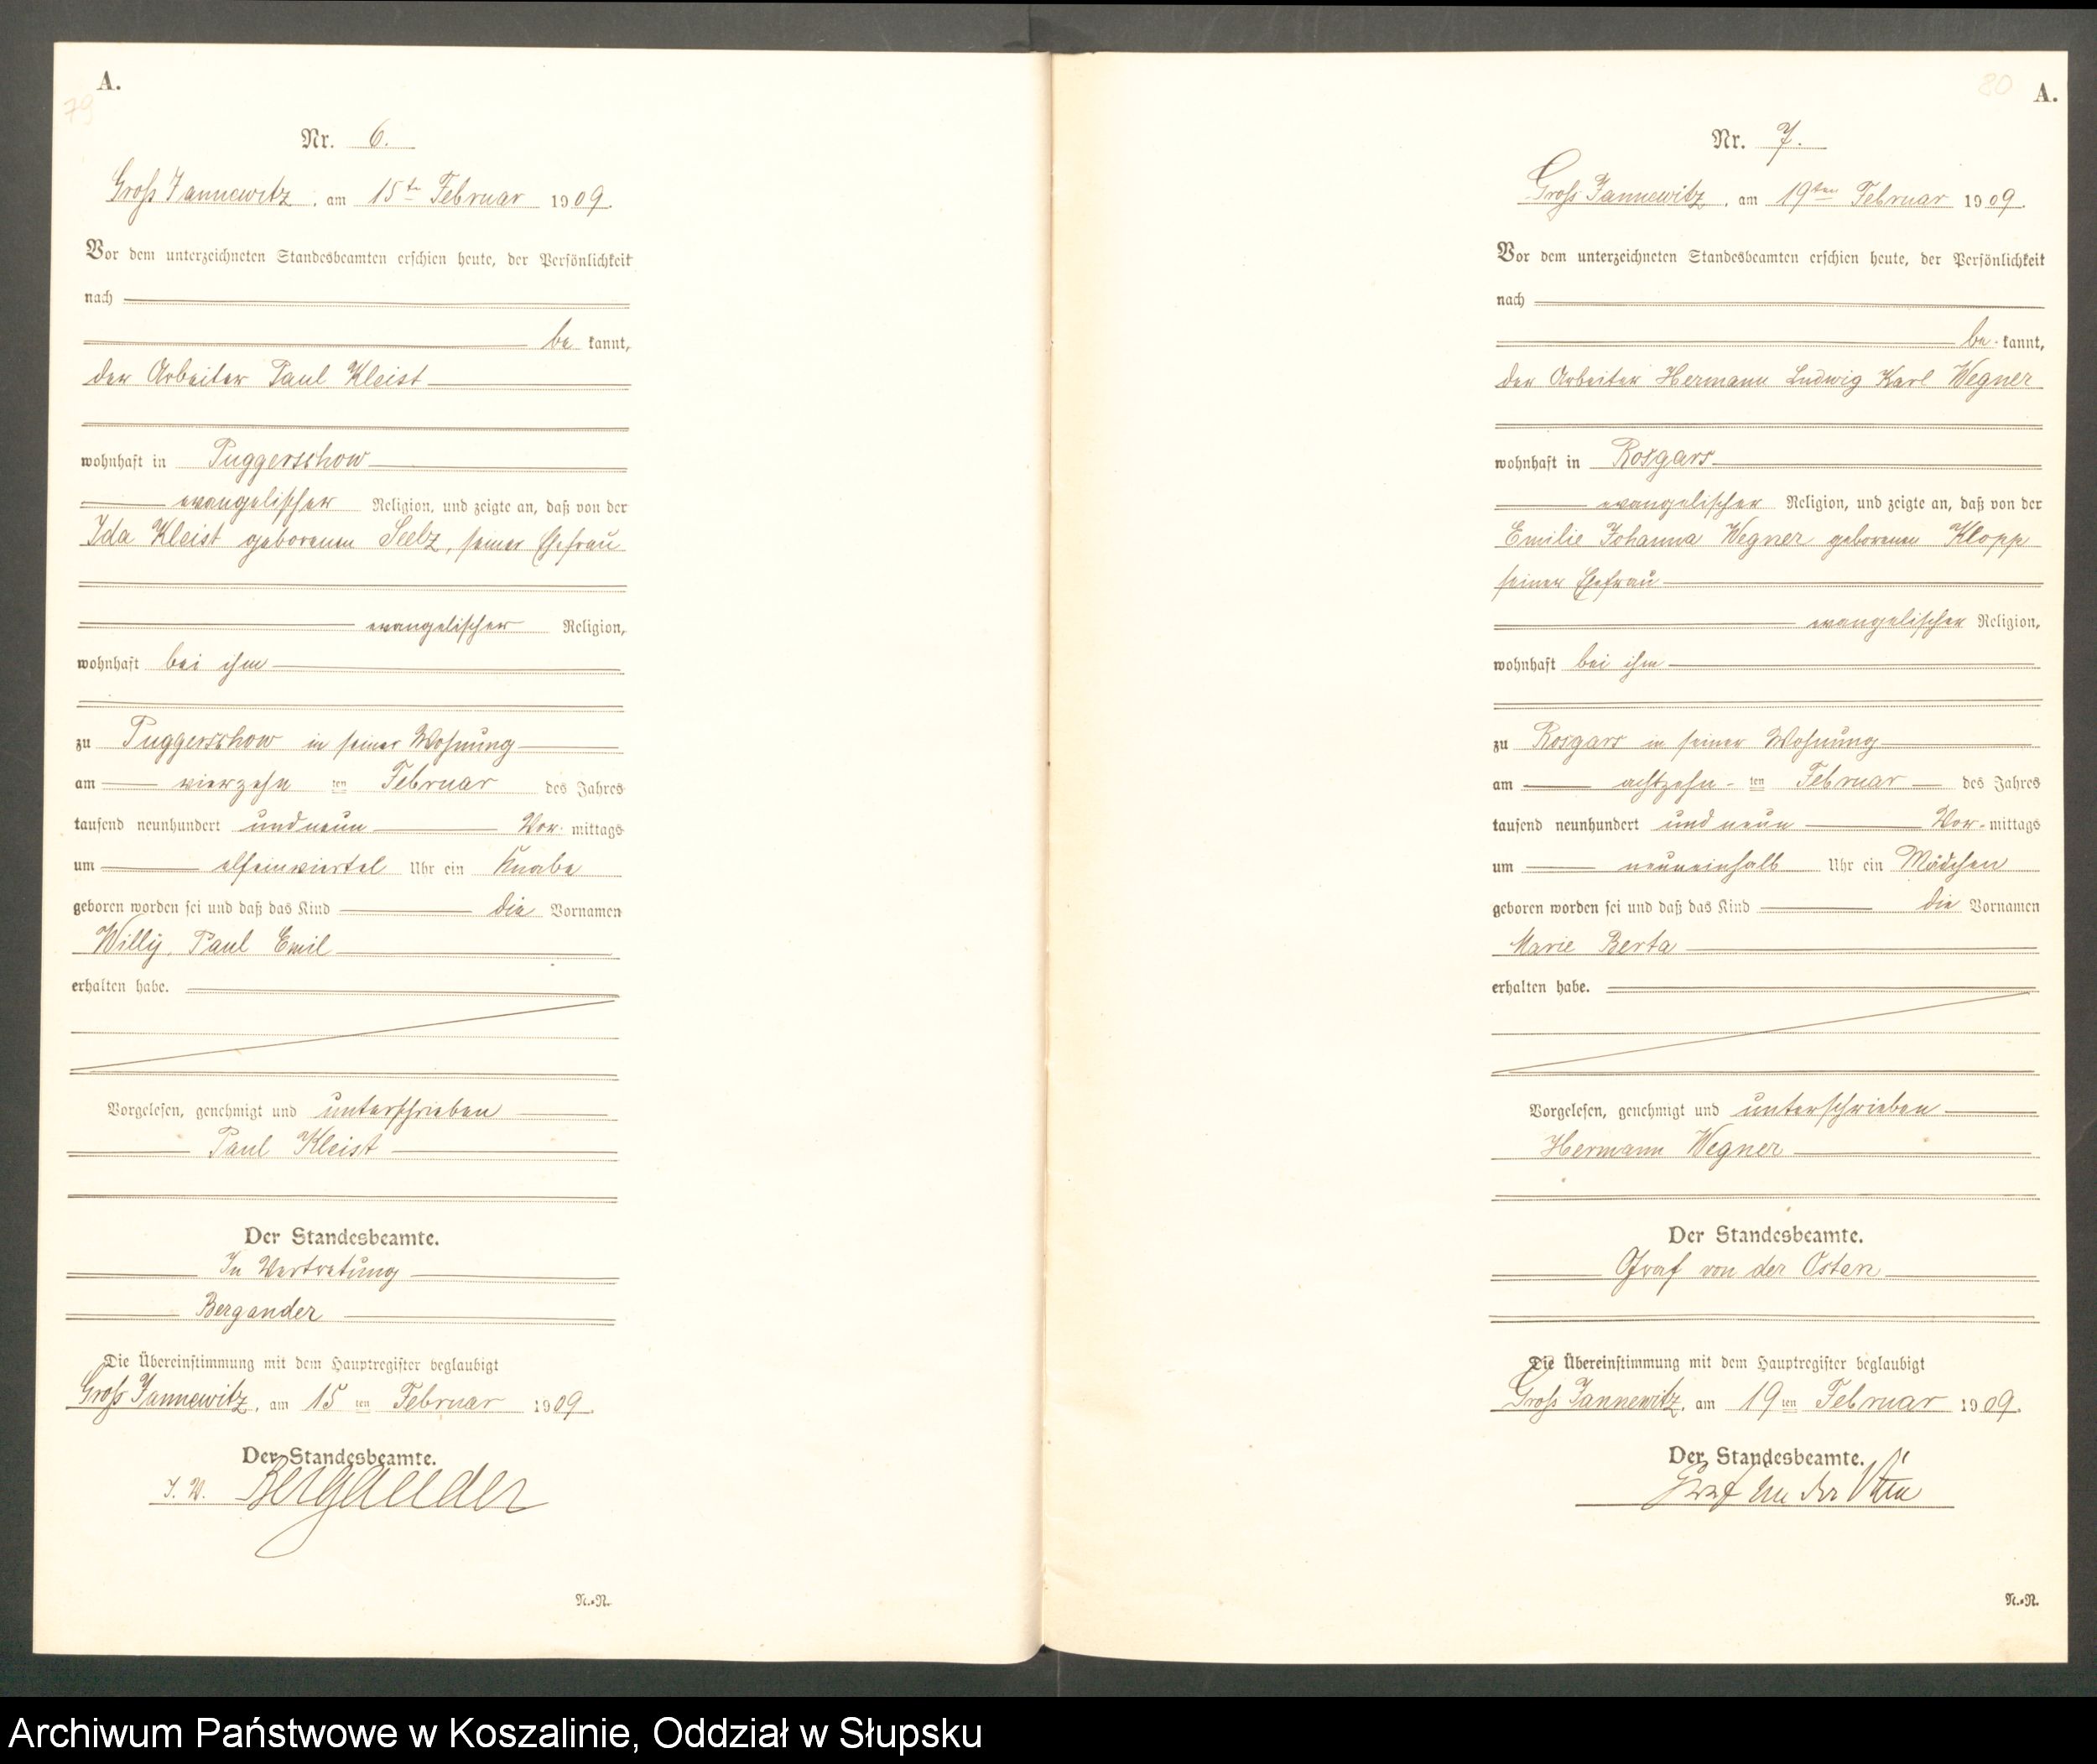 A.
79
Nr. 6.
Groß Jannewitz, am 15te Februar 1909.
Vor dem unterzeichneten Standesbeamten erschien heute, der Persönlichkeit
nach
be kannt,
der Arbeiter Paul Kleist
wohnhaft in Puggerschow
evangelischer Religion, und zeigte an, daß von der
Ida Kleist geborenen Seelz, seiner Ehefrau
evangelischer Religion,
wohnhaft bei ihm
zu Puggerschow in seiner Wohnung
am vierzehn ten Februar des Jahres
tausend neunhundert und neun Vor mittags
um elfeinviertel Uhr ein Knabe
geboren worden sei und daß das Kind die Vornamen
Willy, Paul Emil
erhalten habe.
Vorgelesen, genehmigt und unterschrieben
Paul Kleist
Der Standesbeamte.
In Vertretung
Bergander
Die Übereinstimmung mit dem Hauptregister beglaubigt
Groß Jannewitz, am 15 ten Februar 1909.
Der Standesbeamte.
I. V. Bergander
N.-N.
80
A.
Nr. 7.
Groß Jannewitz, am 19ten Februar 1909.
Vor dem unterzeichneten Standesbeamten erschien heute, der Persönlichkeit
nach
be kannt,
der Arbeiter Hermann Ludwig Karl Wegner
wohnhaft in Rosgars
evangelischer Religion, und zeigte an, daß von der
Emilie Johanna Wegner geborenen Klopp
seiner Ehefrau
evangelischer Religion,
wohnhaft bei ihm
zu Rosgars in seiner Wohnung
am achtzehn ten Februar des Jahres
tausend neunhundert und neun Vor mittags
um neuneinhalb Uhr ein Mädchen
geboren worden sei und daß das Kind die Vornamen
Marie Berta
erhalten habe.
Vorgelesen, genehmigt und unterschrieben
Hermann Wegner
Der Standesbeamte.
Graf von der Osten
Die Übereinstimmung mit dem Hauptregister beglaubigt
Groß Jannewitz, am 19 ten Februar 1909.
Der Standesbeamte.
Graf von der Osten
N.-N.
Archiwum Państwowe w Koszalinie, Oddział w Słupsku